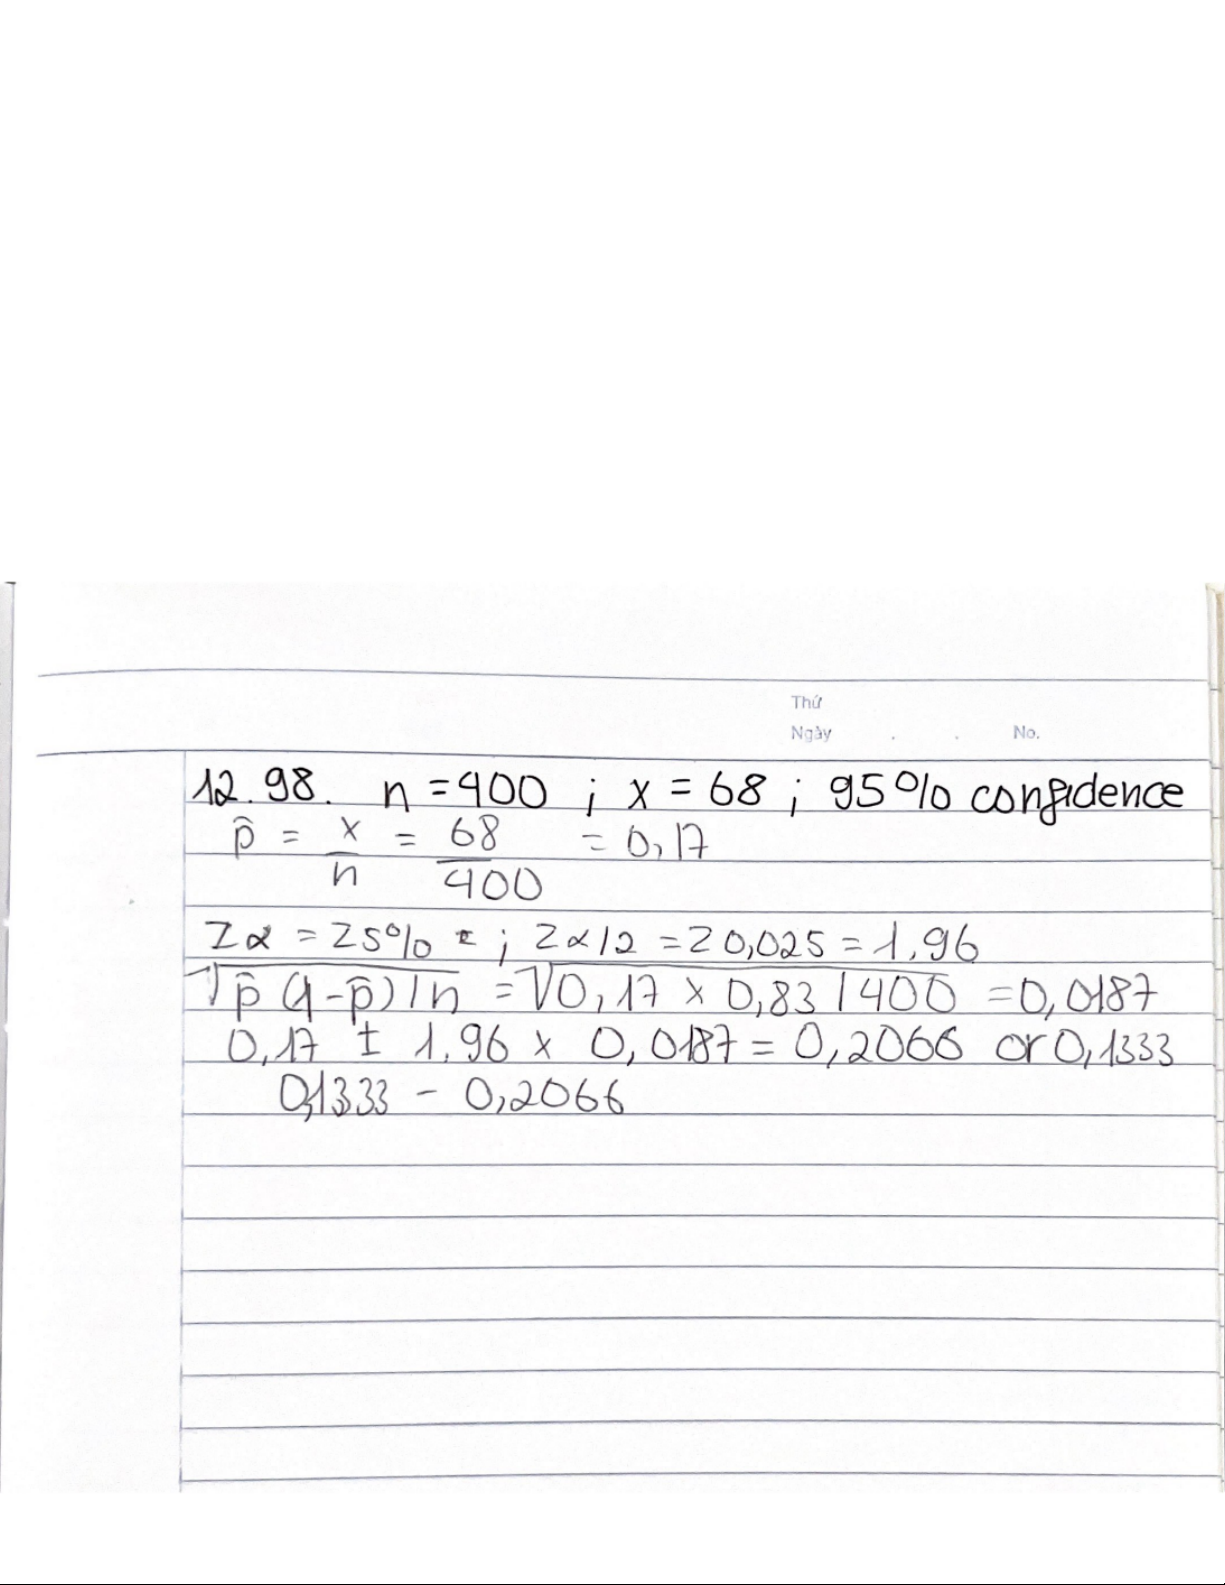 Thứ
Ngày . . No.
12.98. n = 400 ; x = 68 ; 95% confidence
p̂ = x/n = 68/400 = 0,17
Zα = Z5% = ; Zα/2 = Z0,025 = 1,96
√p̂(1-p̂)/n = √0,17 × 0,83/400 = 0,0187
0,17 ± 1,96 × 0,0187 = 0,2066 or 0,1333
0,1333 - 0,2066